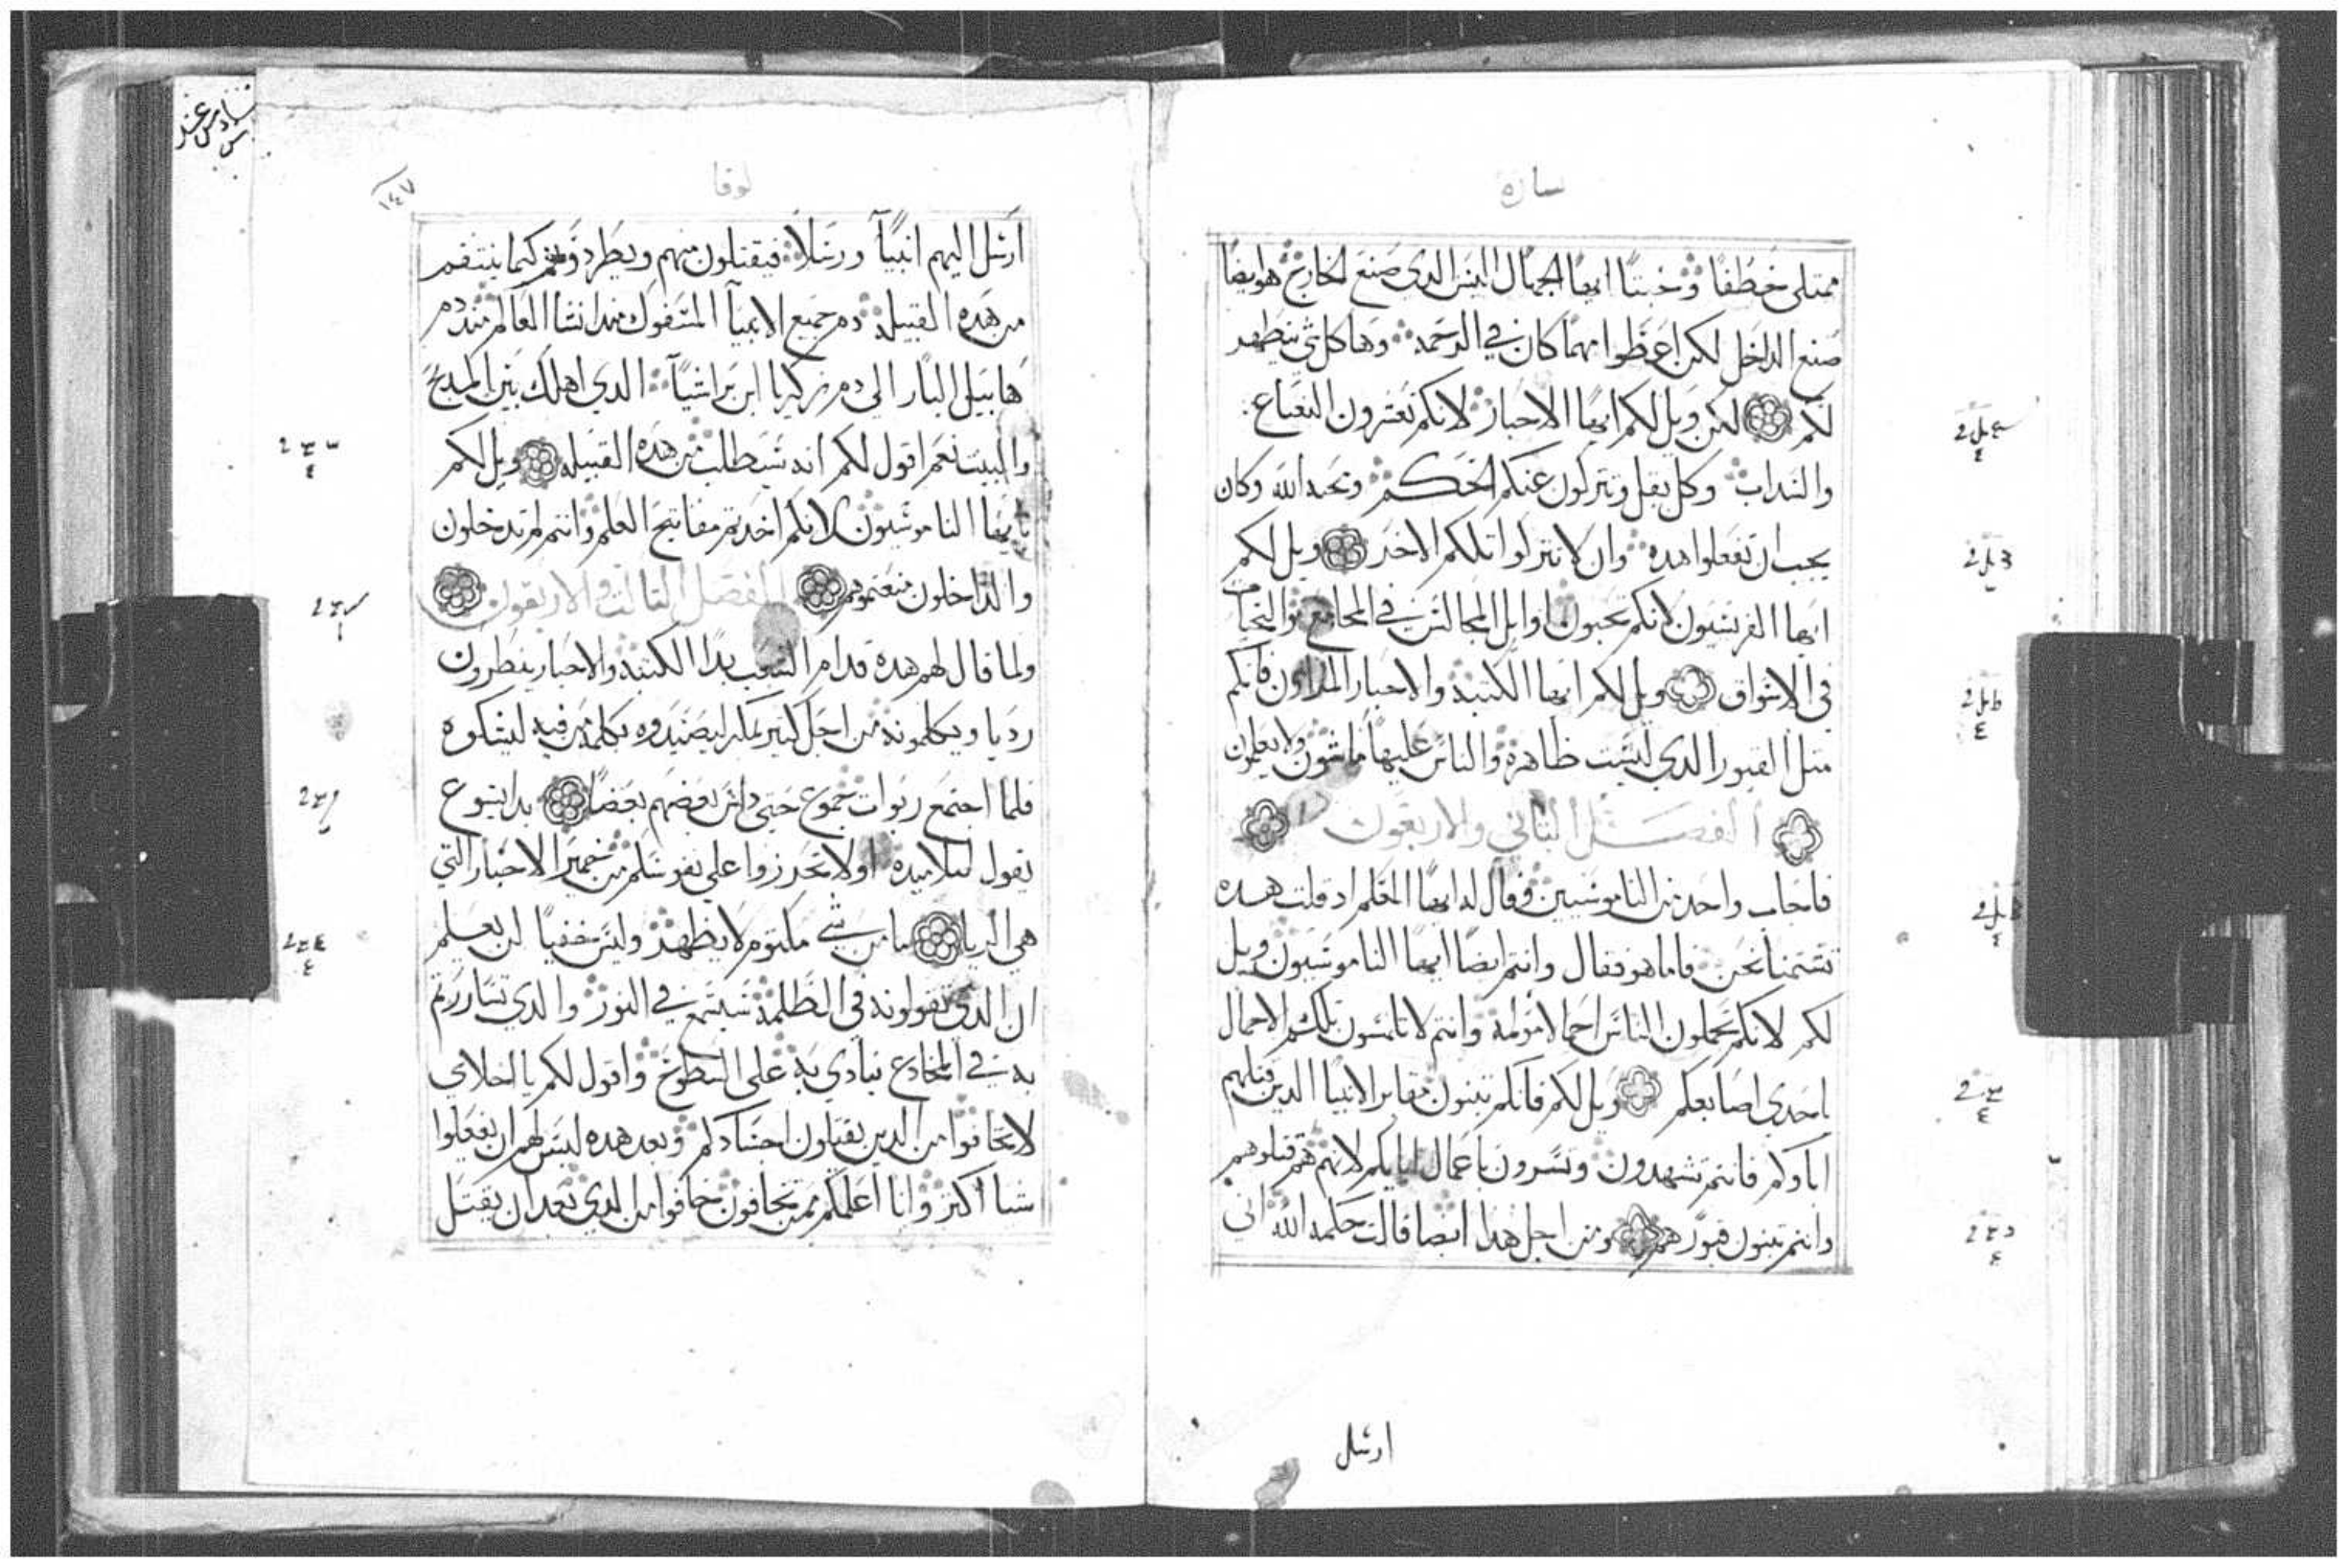 سارة
ممتلى خطفا وخبتا ايها الجهال اليس الدي صنع الخارج هو ايضا
صنع الداخل لكن اعطوا مهما كان في الرحمه وها كل شي يتطهر
لكم لكن ويل لكم ايها الاحبار لانكم تعشرون النعناع
والسداب وكل بقل وتتركون عنكم الحكم ومحبه الله وكان
يجب ان تفعلوا هده وان لا تتركوا تلكم الاخر ويل لكم
ايها الفريسيون لانكم تحبون اوايل المجالس في المجامع والتحيات
في الاسواق ويل لكم ايها الكتبه والاحبار المراوون فانكم
متل القبور الدي ليست ظاهرة والناس عليها ماشون ولا يعلمون
الفصل التاني والاربعون
فاجاب واحد من الناموسيين وقال له ايها المعلم اد قلت هده
تشتمنا نحن فاما هو فقال وانتم ايضا ايها الناموسيون ويل
لكم لانكم تحملون الناس احمالا مولمة وانتم لا تلمسون تلك الاحمال
باحدى اصابعكم ويل لكم فانكم تبنون مقابر الانبيا الدين قتلهم
اباوكم فانتم تشهدون وتسرون باعمال ابايكم لانهم هم قتلوهم
وانتم تبنون قبورهم ومن اجل هدا ايضا قالت حكمه الله اني
ارسل
لوقا
١٤٧
ارسل اليهم انبيا ورسلا فيقتلون منهم ويطردونهم كيما ينتقم
من هده القبيله دم جميع الانبيا المسفوك مند انشا العالم مند دم
هابيل البار الى دم زكريا ابن براشيا الدي اهلك بين المدبح
والبيت نعم اقول لكم انه سيطالب من هده القبيله ويل لكم
ايها الناموسيون لانكم اخدتم مفاتيح العلم وانتم لم تدخلون
والداخلون منعتموهم الفصل التالت والاربعون
ولما قال لهم هده قدام الشعب بدا الكتبه والاحبار ينطرون
رديا ويكلمونه من اجل كتير بمكر ليصيدوه بكلمه من فيه ليشكوه
فلما اجتمع ربوات جموع حتى داس بعضهم بعضا بدا يسوع
يقول لتلاميده اولا تحرزوا على نفوسكم من خمير الاحبار التي
هي الريا ما من شي مكتوم لا يظهر وليس خفيا لن يعلم
ان الدي تقولونه في الظلمه سيسمع في النور والدي تساررتم
به في المخادع ينادي به على السطوح واقول لكم يا اخلاي
لا تخافوا من الدين يقتلون اجسادكم وبعد هده ليس لهم ان يفعلوا
شيا اكتر وانا اعلمكم ممن تخافون خافوا من الدي بعد ان يقتل